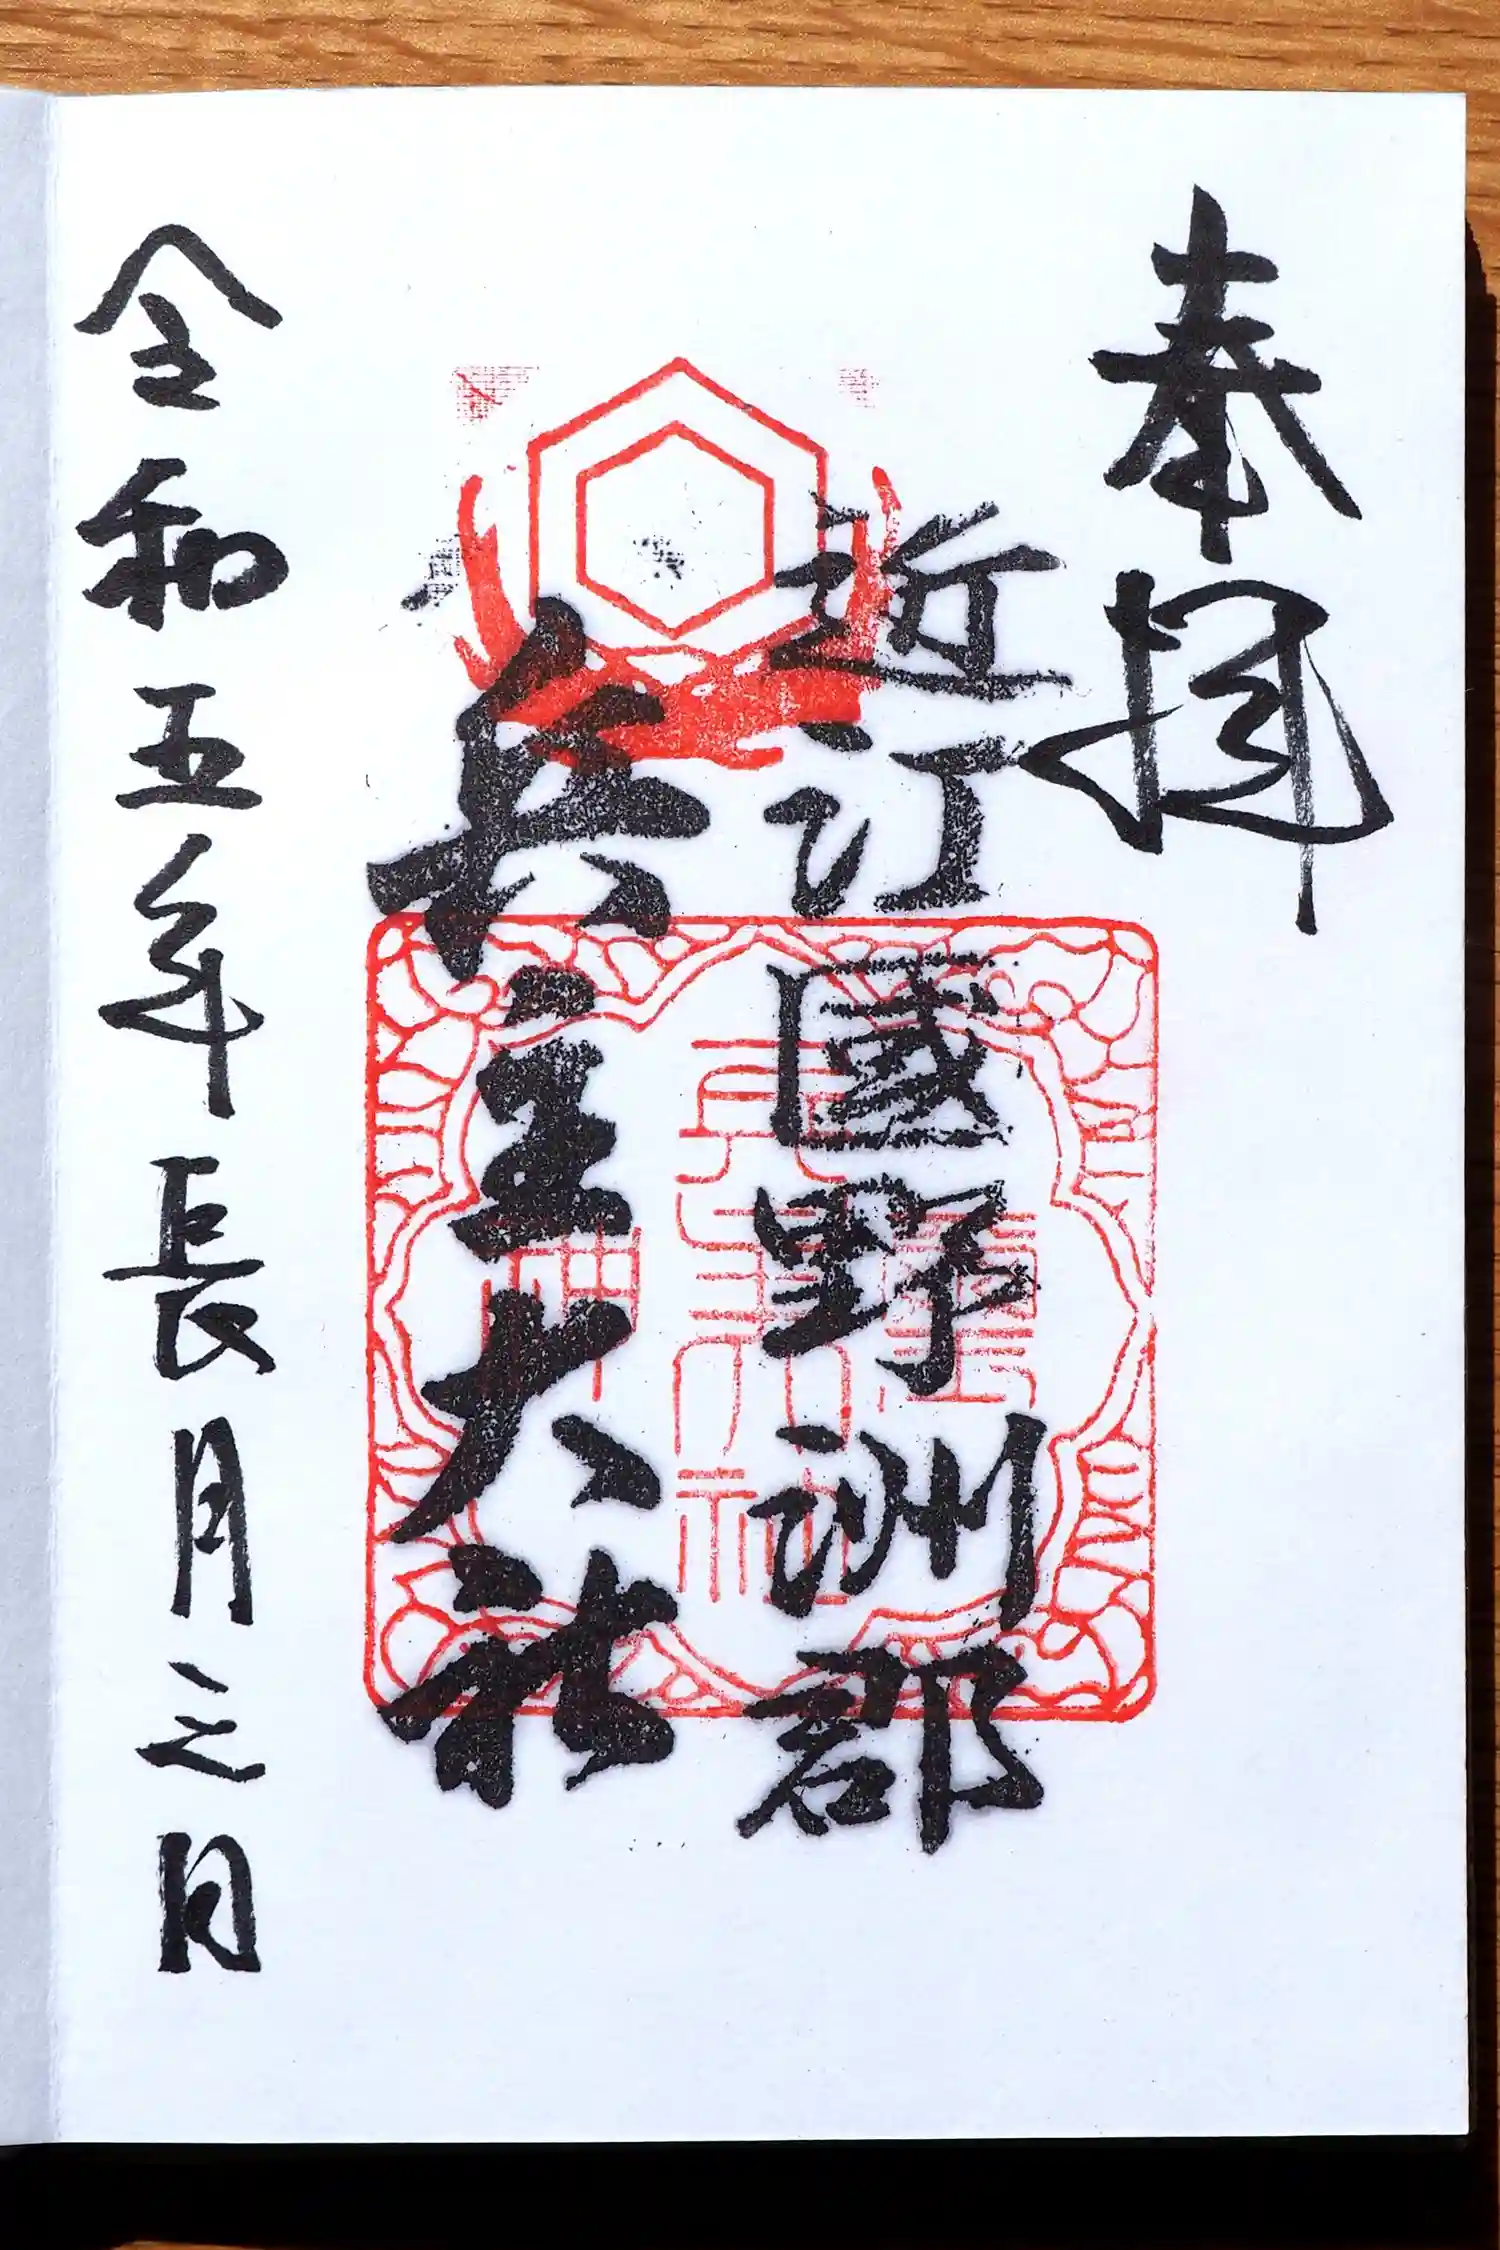 奉拝
近江國野洲郡
兵主大社
令和五年長月之日